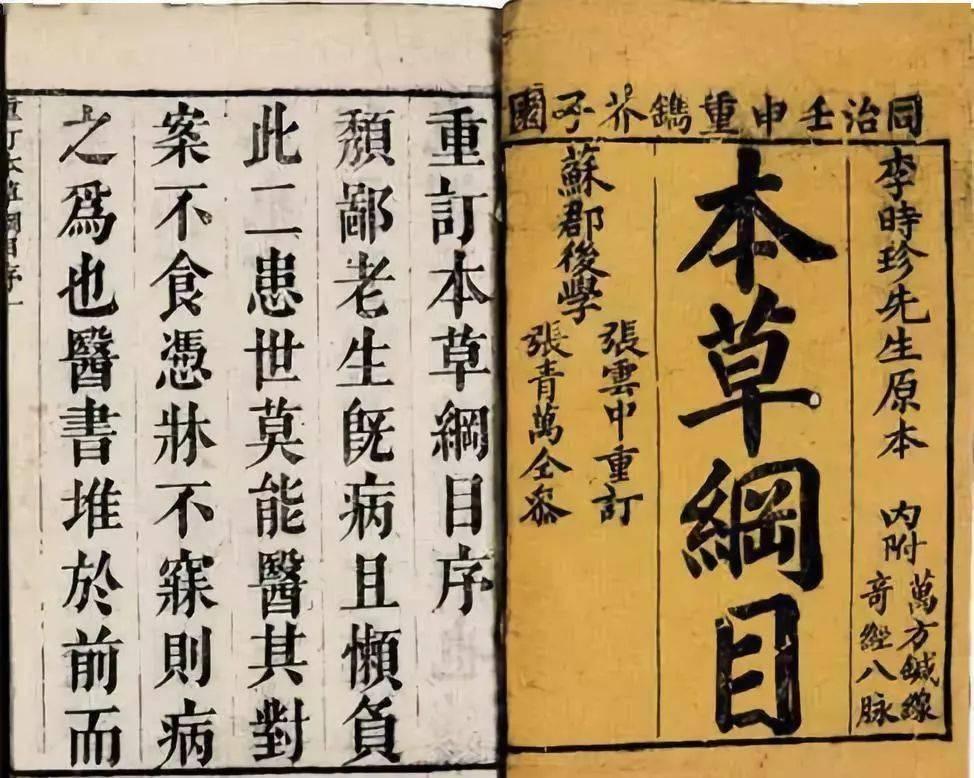 同治壬申重鐫芥子園
李時珍先生原本
內附
萬方鍼線
奇經八脉
本草綱目
蘇郡後學
張雲中重訂
張青萬仝叅
重訂本草綱目序
頹鄙老生旣病且懶負
此二患世莫能醫其對
案不食憑牀不寐則病
之爲也醫書堆於前而